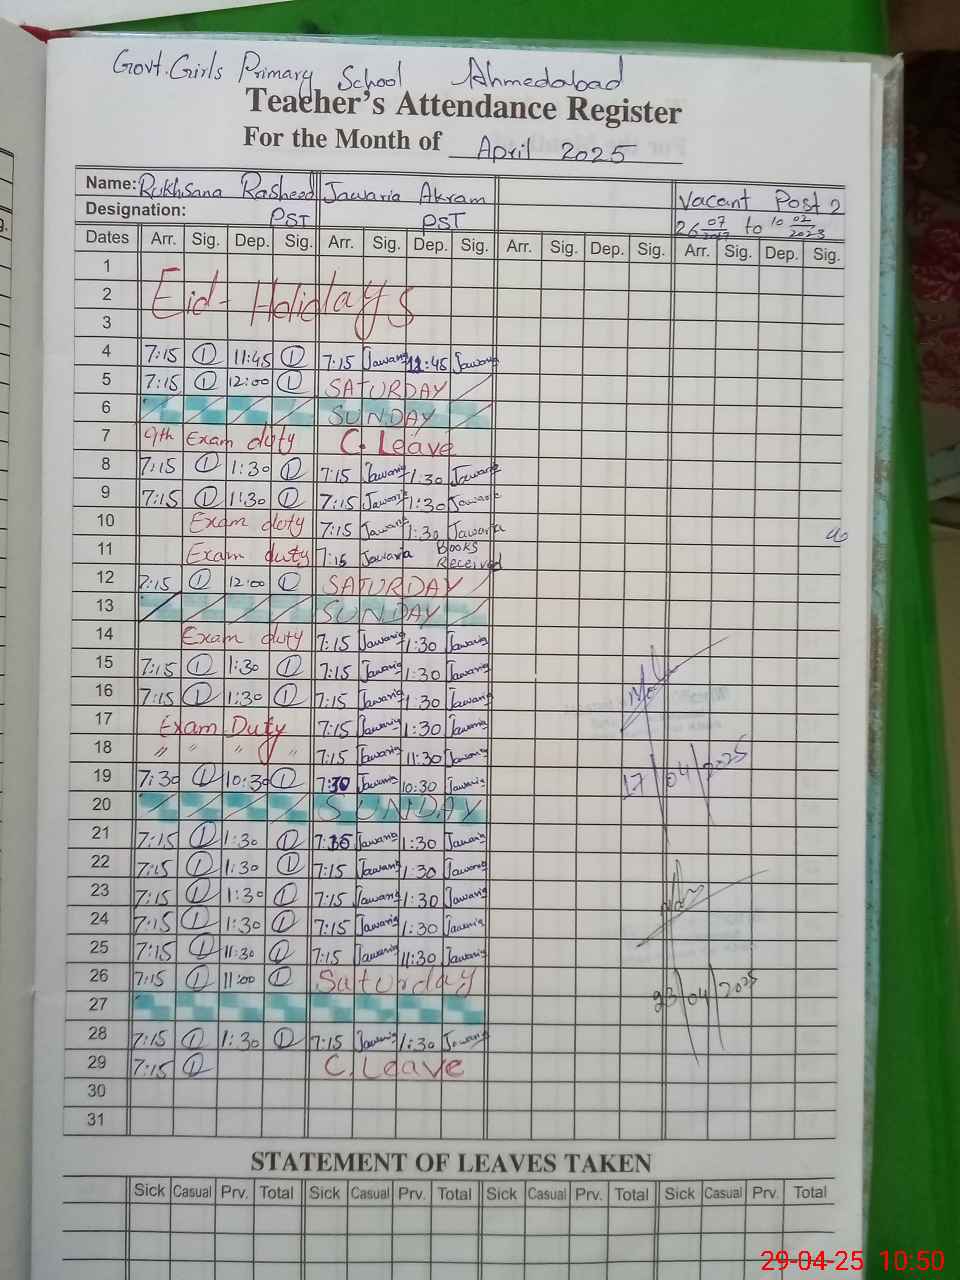 Govt. Girls Primary School Ahmedabad
Teacher's Attendance Register
For the Month of April 2025
Name: Rukhsana Rasheed Jawaria Akram Vacant Post 2
Designation: PST PST 26 07/2017 to 10 02/2023
Dates Arr. Sig. Dep. Sig. Arr. Sig. Dep. Sig. Arr. Sig. Dep. Sig. Arr. Sig. Dep. Sig.
1
2 Eid-Holidays
3
4 7:15 11:45 7:15 Jawaria 11:45 Jawaria
5 7:15 12:00 SATURDAY
6 SUNDAY
7 9th Exam duty C. Leave
8 7:15 1:30 7:15 Jawaria 1:30 Jawaria
9 7:15 1:30 7:15 Jawaria 1:30 Jawaria
10 Exam duty 7:15 Jawaria 1:30 Jawaria
11 Exam duty 7:15 Jawaria Books Received
12 7:15 12:00 SATURDAY
13 SUNDAY
14 Exam duty 7:15 Jawaria 1:30 Jawaria
15 7:15 1:30 7:15 Jawaria 1:30 Jawaria
16 7:15 1:30 7:15 Jawaria 1:30 Jawaria
17 Exam Duty 7:15 Jawaria 1:30 Jawaria
18 " " " " 7:15 Jawaria 11:30 Jawaria
19 7:30 10:30 7:30 Jawaria 10:30 Jawaria
17/04/2025
20 SUNDAY
21 7:15 1:30 Jawaria 1:30 Jawaria
22 7:15 1:30 7:15 Jawaria 1:30 Jawaria
23 7:15 1:30 7:15 Jawaria 1:30 Jawaria
24 7:15 1:30 7:15 Jawaria 1:30 Jawaria
25 7:15 11:30 7:15 Jawaria 11:30 Jawaria
26 7:15 11:00 Saturday
27
23/04/2025
28 7:15 1:30 7:15 Jawaria 1:30 Jawaria
29 7:15 C. Leave
30
31
STATEMENT OF LEAVES TAKEN
Sick Casual Prv. Total Sick Casual Prv. Total Sick Casual Prv. Total Sick Casual Prv. Total
29-04-25 10:50